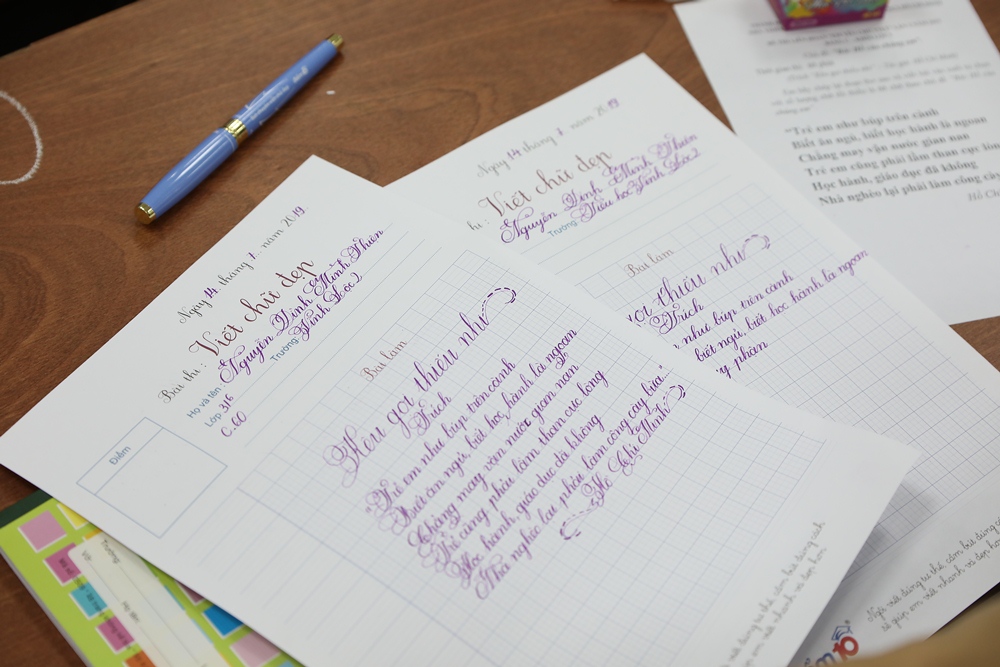 Ngày 14 tháng 7 năm 2019
Bài thi: Viết chữ đẹp
Họ và tên Nguyễn Đình Duy Minh Thiên
Lớp 3/6 Trường: Vĩnh Lộc 2
C.60
Điểm
Bài làm
Kêu gọi thiếu nhi
Trích
"Trẻ em như búp trên cành
Biết ăn ngủ, biết học, hành là ngoan
Chẳng may vận nước gian nan
Trẻ cũng phải lầm than cực lòng
Học hành, giáo dục đã không
Nhà nghèo lại phải làm công cày bừa."
Hồ Chí Minh
tư thế, cầm bút đúng cách
viết nhanh và đẹp hơn
Ngày 14 tháng 7 năm 2019
thi: Viết chữ đẹp
Nguyễn Đình Duy Minh Thiên
Trường: Tiểu học Vĩnh Lộc 2
Bài làm
gọi thiếu nhi
Trích
như búp trên cành
biết ngủ, biết học hành là ngoan
phận
Ngồi viết đúng tư thế, cầm bút đúng c
sẽ giúp em viết nhanh và đẹp hơn
10
"Trẻ em như búp trên cành
Biết ăn ngủ, biết học hành là ngoan
Chẳng may vận nước gian nan
Trẻ em cũng phải lầm than cực lòn
Học hành, giáo dục đã không
Nhà nghèo lại phải làm công cày
Hồ Ch